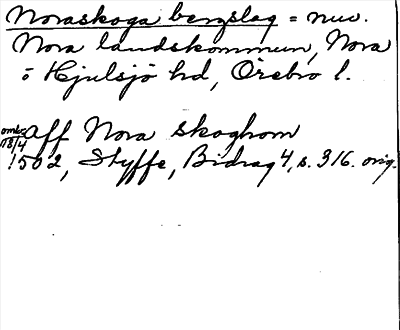 Noraskoga bergslag = nuv.
Nora landskommun, Nora
o Hjulsjö hd, Örebro l.
omkr. 18/4 aff Nora skoghom
1502, Styffe, Bidrag 4, s. 316. orig.